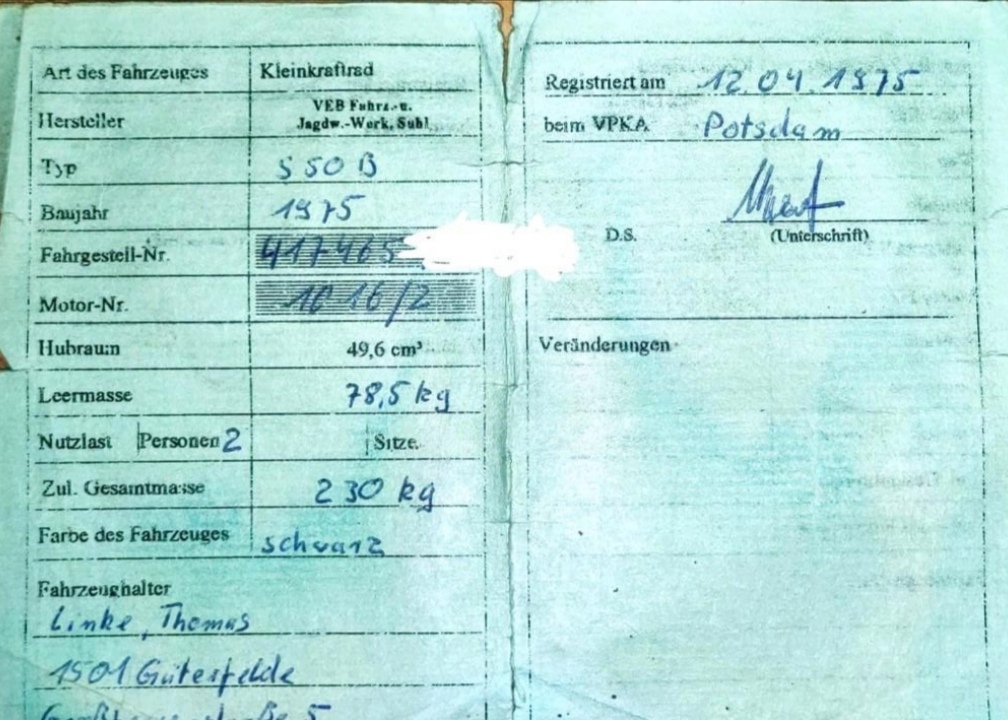 Art des Fahrzeuges Kleinkraftrad
Hersteller VEB Fahrz.-u. Jagdw.-Werk, Suhl
Typ S 50 B
Baujahr 1975
Fahrgestell-Nr. 417465
Motor-Nr. 1016/2
Hubraum 49,6 cm³
Leermasse 78,5 kg
Nutzlast Personen 2 Sitze
Zul. Gesamtmasse 230 kg
Farbe des Fahrzeuges schwarz
Fahrzeughalter
Linke, Thomas
1501 Gütersfelde
5
Registriert am 12.04.1975
beim VPKA Potsdam
D.S. (Unterschrift)
Veränderungen